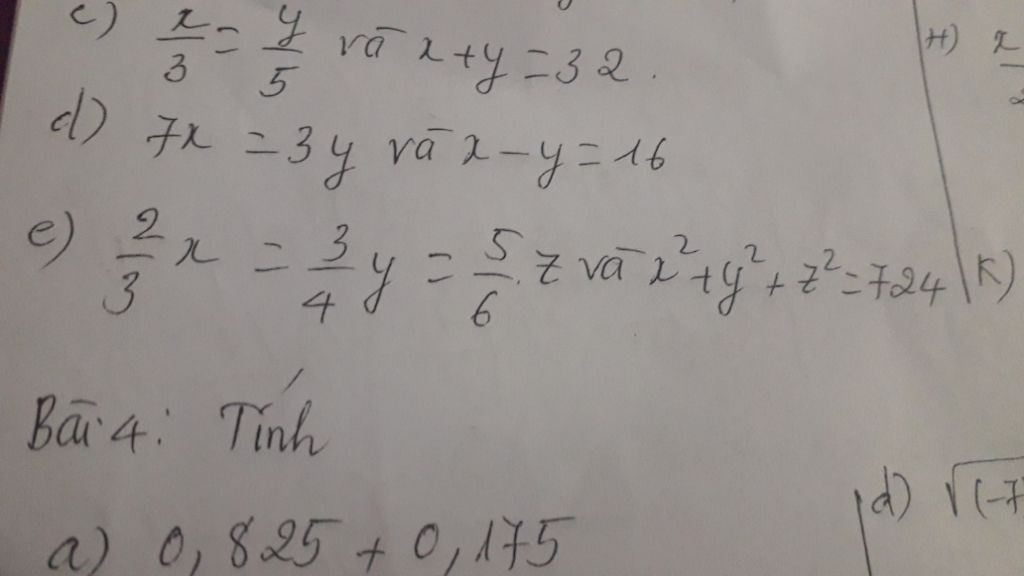 c) x/3 = y/5 và x+y=32.
d) 7x = 3y và x-y=16
e) 2/3 x = 3/4 y = 5/6 . z và x²+y²+z²=724
Bài 4: Tính
a) 0,825 + 0,175
H) x
K)
d) √(-7